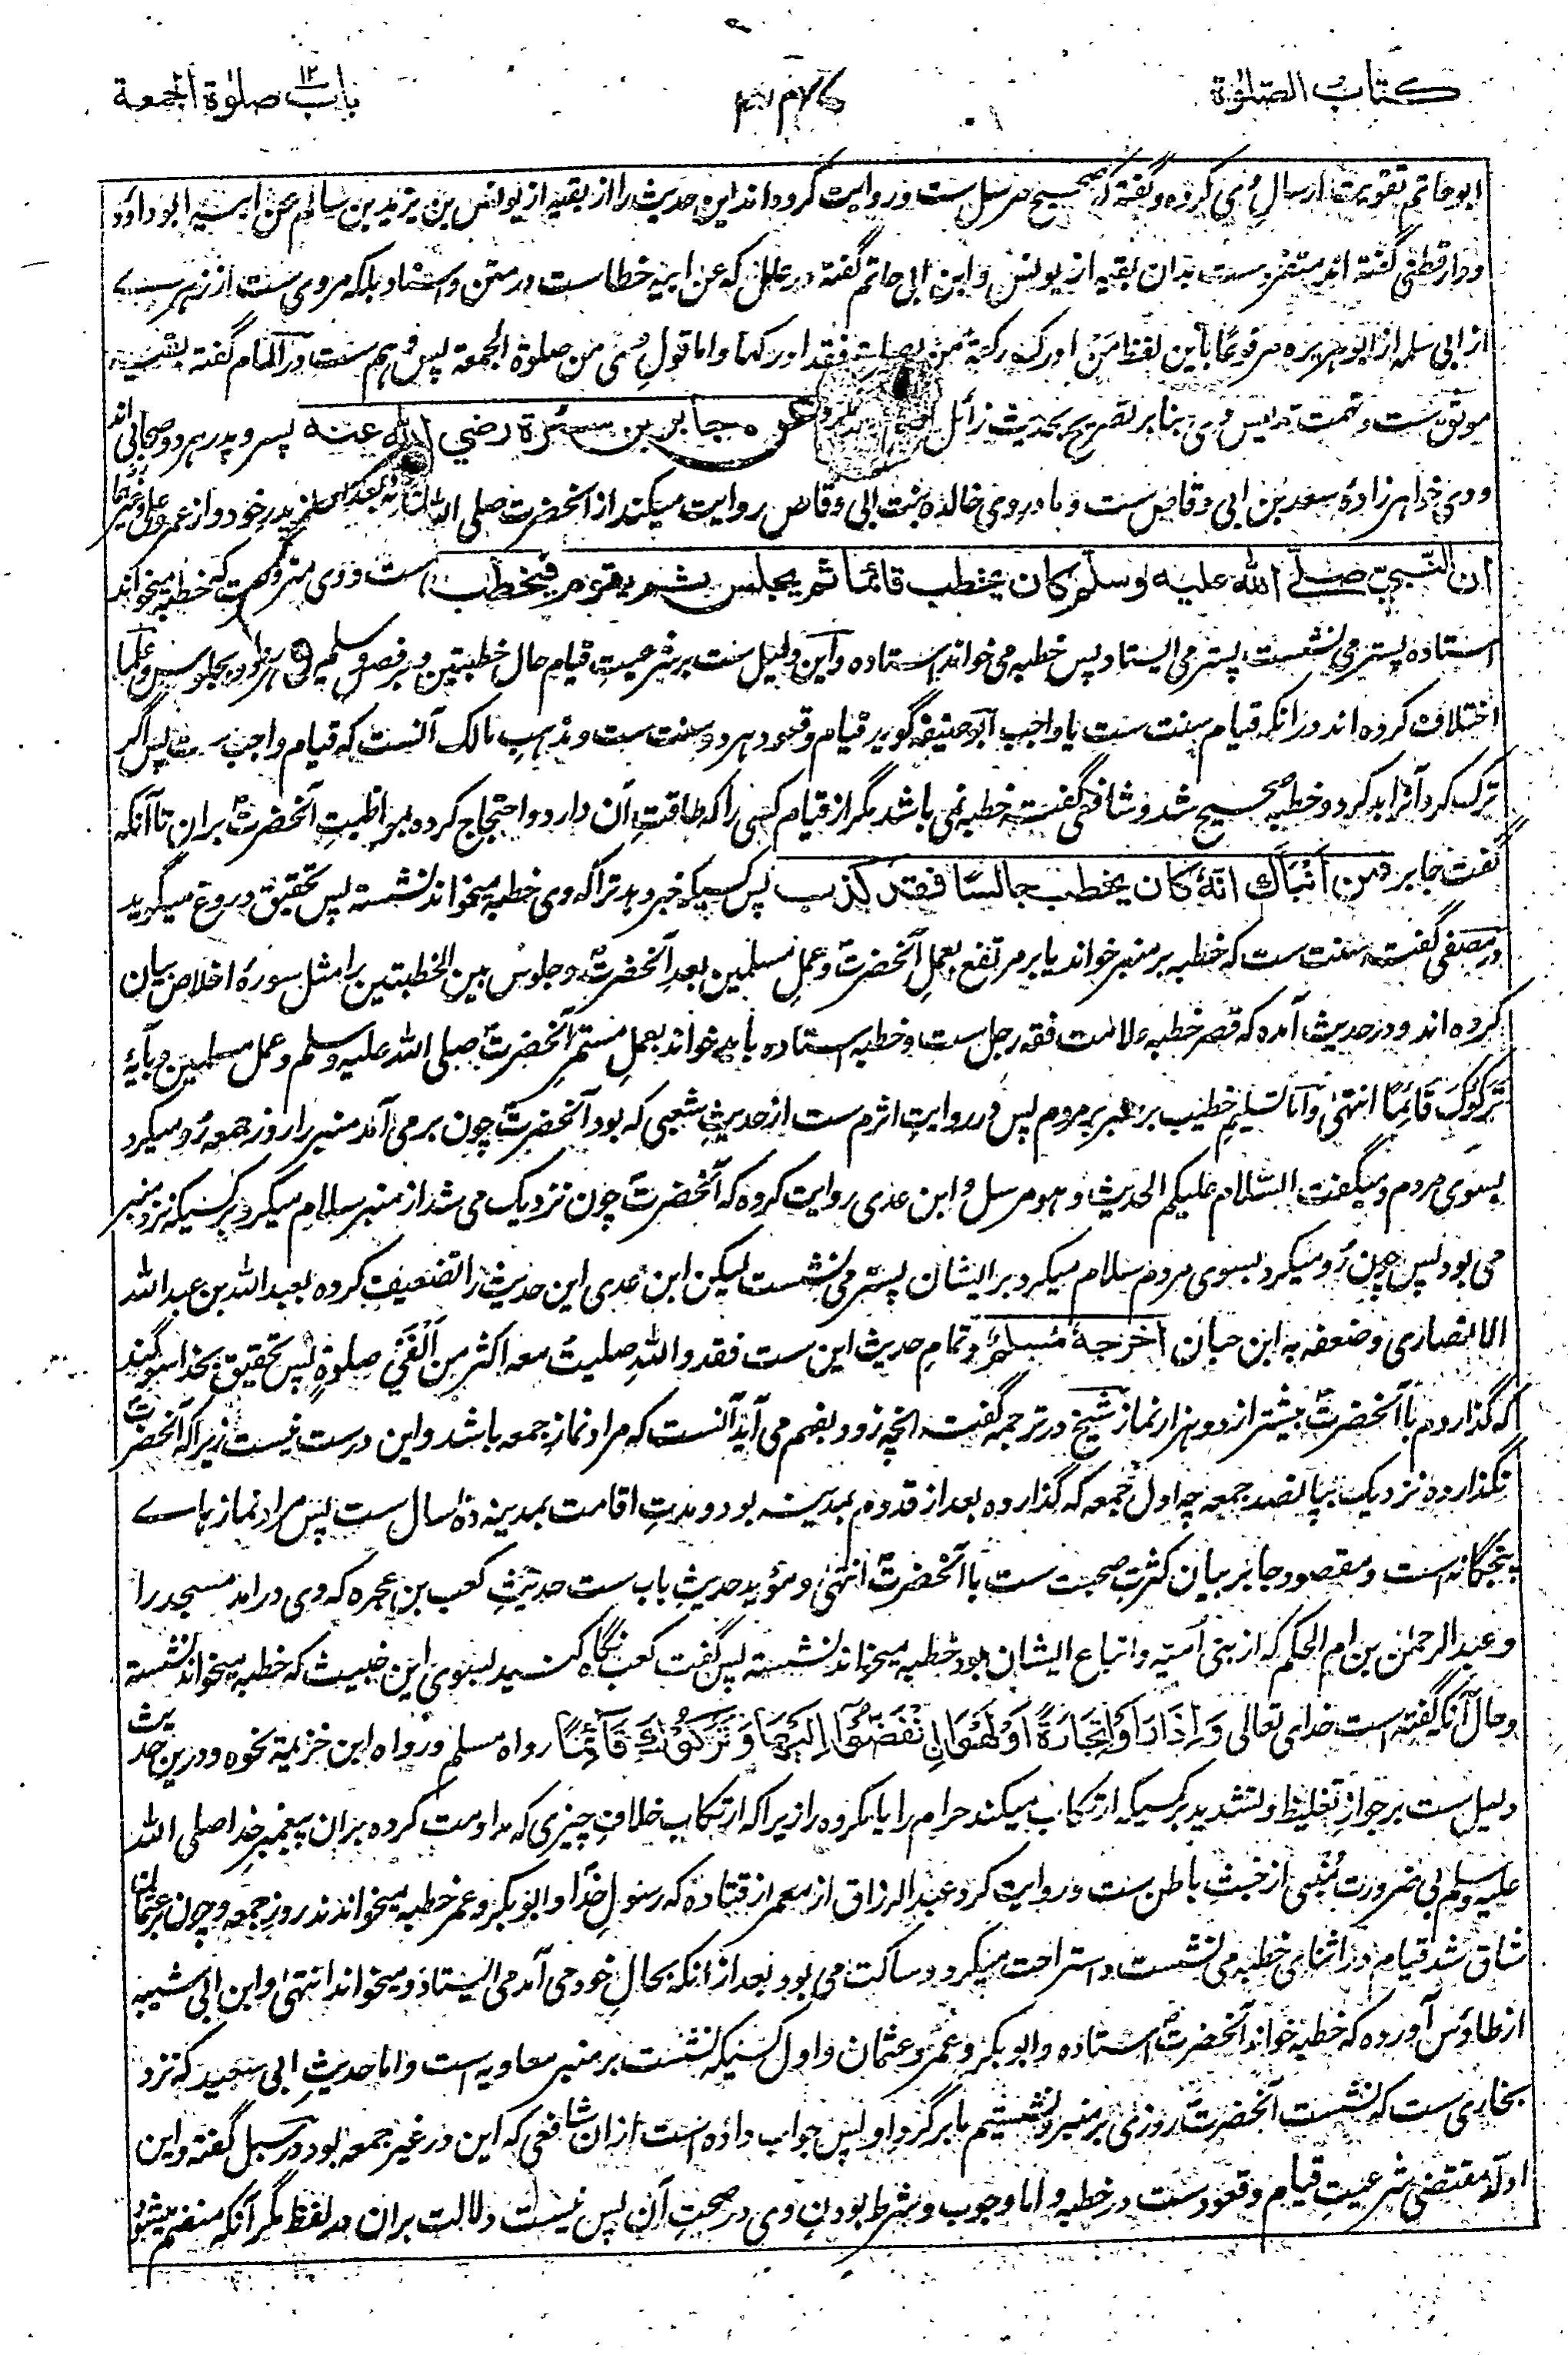 كتاب الصلوة
باب صلوة الجمعة ۱۲
ابو حاتم تقویت ارسال وی کرده و گفته که صحیح مرسل است و روایت کرده اند این حدیث را از بقیه از یونس بن یزید بن سالم عن ابیه ابو داؤد
و دارقطنی گفته اند متفرد ست بدان بقیه از یونس و ابن ابی حاتم گفته در علل که عن ابیه خطا ست در متن و اسناد بلکه مروی ست از زهرسے
از ابی سلمه از ابو هریره مرفوعًا باین لفظ من ادرک رکعة من فقد ادرکها و اما قول وی من صلوة الجمعة پس وهم ست در المام گفته بقیه
موثق ست و تهمت تدلیس وی بنا بر تصریح بحدیث زائل جابر بن سمرة رضي الله عنه پسر و پدر هر دو صحابی اند
و وی خواهر زادهٔ سعد بن ابی وقاص ست و مادر وی خالده بنت ابی وقاص روایت میکند از آنحضرت صلی الله پدر خود و از عمر و علی و غیرها
ان النبيّ صلے الله عليه وسلم كان يخطب قائما ثم يجلس ثم يقوم فيخطب ست که خطبه میخواند
استاده پستر می نشست پستر می ایستاد پس خطبه می خواند استاده و این دلیل ست بر شرعیتِ قیام حال خطبتین و بر فصل بجلوس و علما
اختلاف کرده اند در آنکه قیام سنت ست یا واجب ابو حنیفه گوید قیام و قعود هر دو سنت ست و مذهبِ مالک آنست که قیام واجب ست پس اگر
ترک کرد آنرا بد کرد و خطبه صحیح شد و شافعی گفته خطبه نمی باشد مگر از قیام کسی را که طاقتِ آن دارد و احتجاج کرده بمواظبتِ آنحضرتؐ بران تا آنکه
گفت جابر ومن أنبأك انهٗ كان يخطب جالسًا فقد كذب پس کسیکه خبر دهد ترا که وی خطبه میخواند نشسته پس تحقیق دروغ میگوید
در مصفی گفته سنت ست که خطبه بر منبر خواند یا بر مرتفع بعملِ آنحضرتؐ و عملِ مسلمین بعدِ آنحضرتؐ و جلوس بین الخطبتین را مثل سورهٔ اخلاص بیان
کرده اند و در حدیث آمده که قصر خطبه علامت فقه رجل ست و خطبه استاده باید خواند بعمل مستمرِ آنحضرتؐ صلی الله علیه وسلم و عمل مسلمین و بآیهٔ
تَرَكُوْكَ قَائِمًا انتهیٰ و اما تسلیم خطیب بر منبر بر مردم پس در روایتِ اثرم ست از حدیثِ شعبی که بود آنحضرتؐ چون بر می آمد منبر را روز جمعه رُو میکرد
بسوی مردم و میگفت السّلام علیکم الحدیث و هو مرسل و ابن عدی روایت کرده که آنحضرتؐ چون نزدیک می شد از منبر سلام میکرد بر کسیکه نزد منبر
می بود پس چون رُو میکرد بسوی مردم سلام میکرد بر ایشان پستر می نشست لیکن ابن عدی این حدیث را تضعیف کرده بعبد الله بن عبد الله
الانصاری و ضعفه به ابن حبان اخرجهٔ مسلم و تمام حدیث این ست فقد و اللهِ صلیتُ معه اکثر من اَلْفَیْ صلوةٍ پس تحقیق بخدا سوگند
که گذاردم با آنحضرتؐ بیشتر از دو هزار نماز شیخ در ترجمه گفته انچه زود بفهم می آید آنست که مراد نماز جمعه باشد و این درست نیست زیرا که آنحضرتؐ
نگذارده نزدیک بپانصد جمعه چه اول جمعه که گذارده بعد از قدوم بمدینه بود و مدتِ اقامت بمدینه ده سال ست پس مراد نماز هاے
پنجگانه است و مقصود جابر بیان کثرتِ صحبت ست با آنحضرتؐ انتهیٰ و مؤیدِ حدیثِ باب ست حدیثِ کعب بن عجره که وی درامد مسجد را
و عبد الرحمٰن بن ام الحکم که از بنی امیّه و اتباع ایشان بود خطبه میخواند نشسته پس گفت کعب نگاه کنید بسوی این خبیث که خطبه میخواند نشسته
و حال آنکه گفته است خدای تعالی وَإِذَا رَأَوْا تِجَارَةً أَوْ لَهْوَا اِنْفَضُّوْا اِلَيْهَا وَتَرَكُوْكَ قَآئِمًا رواه مسلم و رواه ابن خزیمة نحوه و درین حدیث
دلیل ست بر جوازِ تغلیظ و تشدید بر کسیکه ارتکاب میکند حرام را یا مکروه را زیرا که ارتکاب خلافِ چیزی که مداومت کرده بران پیغمبرِ خدا صلی الله
علیه وسلم بی ضرورت مُنبی از خبثِ باطن ست و روایت کرد عبد الرزاق از معمر از قتاده که رسول خدا و ابو بکر و عمر خطبه میخواندند روز جمعه و چون بر عثمان
شاق شد قیام در اثنای خطبه می نشست و استراحت میکرد و ساکت می بود و بعد از انکه بحالِ خود می آمد می ایستاد و میخواند انتهیٰ و ابن ابی شیبه
از طاؤس آورده که خطبه خواند آنحضرتؐ استاده و ابو بکر و عمر و عثمان و اول کسیکه نشست بر منبر معاویه است و اما حدیثِ ابی سعید که نزد
بخاری ست که نشست آنحضرتؐ روزی بر منبر و نشستیم ما بر گردِ او پس جواب داده است ازان شافعی که این در غیر جمعه بود در سبل گفته و این
ادله مقتضی شرعیتِ قیام و قعودست در خطبه و اما وجوب و شرط بودنِ وی در صحتِ آن پس نیست دلالت بران در لفظ مگر آنکه منضم میشود